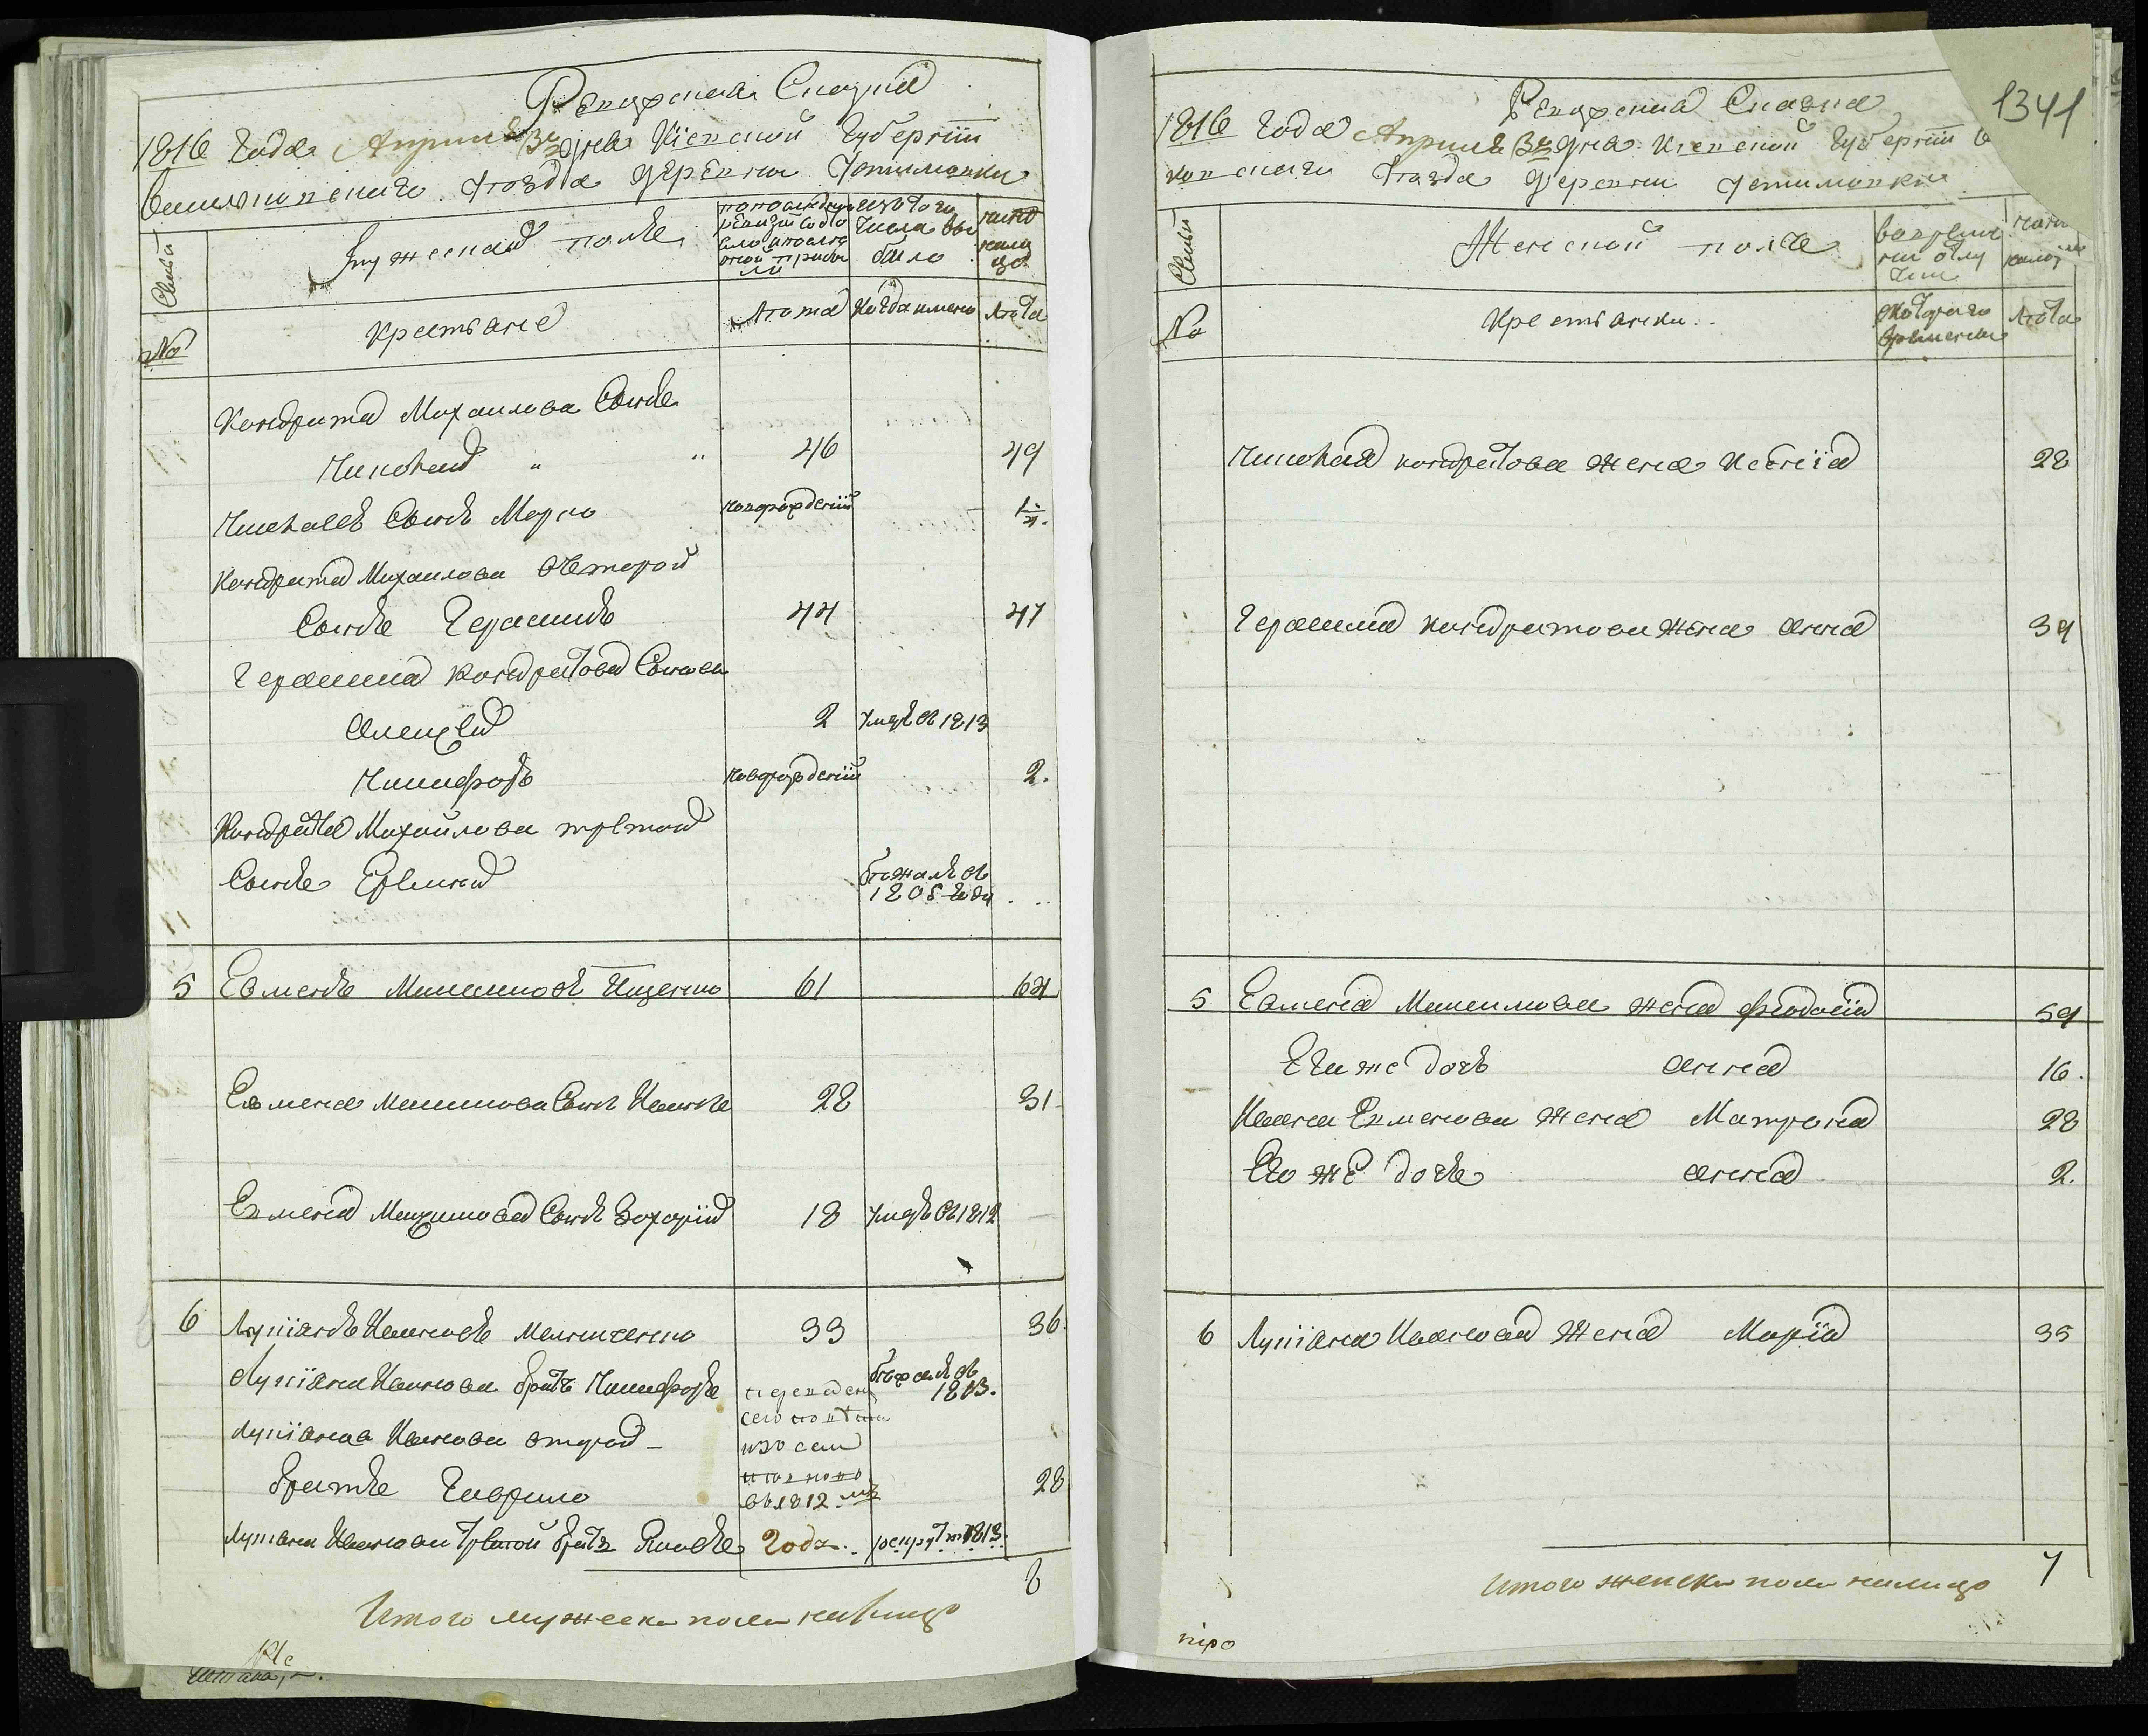 Ревизская Сказка
1816 Года Апреля 3 дня Кіевской Губерніи
Васильковскаго Уезда деревни Устимовки
Семьи
Мужеской полъ
по последней ревизіи состояло и после оной прибыло
изъ того числа выбыло
ныне налицо
№
Крестьяне
Лета
Когда имено
Лета
Кондрата Михаилова Сынъ
Николай " " 46 49
Николаевъ Сынъ Марко новорожденій 1
Кондрата Михаилова вторój
Сынъ Герасимъ 44 47
Герасима Кондратова Сыновя
Алексей 2 умръ въ 1813
Никифоръ новорожденій 2.
Кондрата Михайлова третой
Сынъ Еремей бежалъ въ
1808 году
5 Евменъ Максимовъ Ищенко 61 64
Евмена Максимова Сынъ Иванъ 28 31
Евмена Максимова Сынъ Захарій 18 умръ въ 1812
6 Лукіянъ Ивановъ Мельниченко 33 36.
Лукіяна Иванова братъ Никифоръ бежалъ въ
1813.
Лукіяна Иванова второй
братъ Гаврило 28
изъ села
въ 1812 мъ
Лукіяна Иванова третой братъ Яковъ Года. рекрут 1813.
8
Итого мужеска пола налицо
1341
Ревизская Сказка
1816 Года Апреля 3 дня Кіевской Губерніи Ва
ковскаго Уезда деревни Устимовки
Семьи
Женской полъ
во временной отлучки
ныне налицо
№
Крестьянки
съ котораго времени
Лета
Николая Кондратова жена Ксенія 28
Герасима Кондратова жена Анна 34
5 Евмена Максимова жена Феодосія 59
Его же дочь Анна 16.
Ивана Евменова жена Матрона 28
Его же дочь Анна 2.
6 Лукіяна Иванова жена Марія 35
7
Итого женска пола налицо